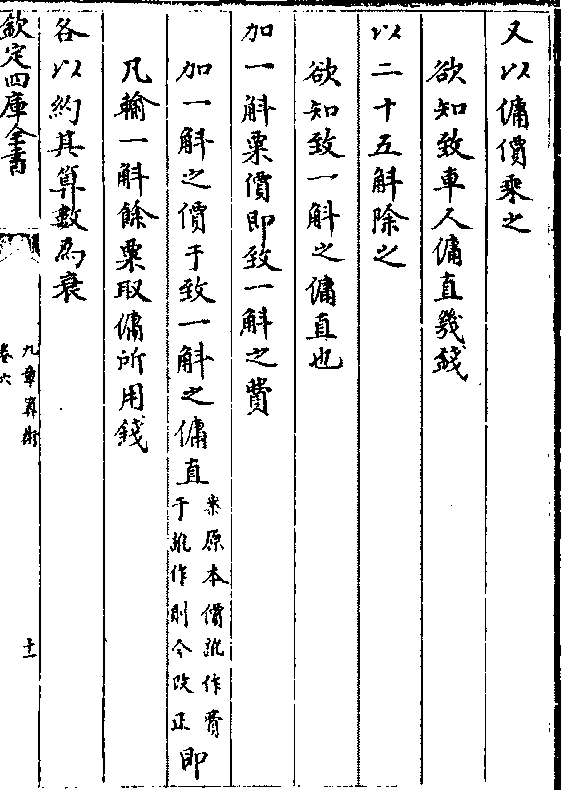 又以傭價乘之
欲知致車人傭直幾錢
以二十五斛除之
欲知致一斛之傭直也
加一斛粟價即致一斛之費
加一斛之價于致一斛之傭直案原本價訛作費于訛作則今改正即
凡輸一斛餘粟取傭所用錢
各以約其算數為衰
欽定四庫全書
九章算術
卷六
十一